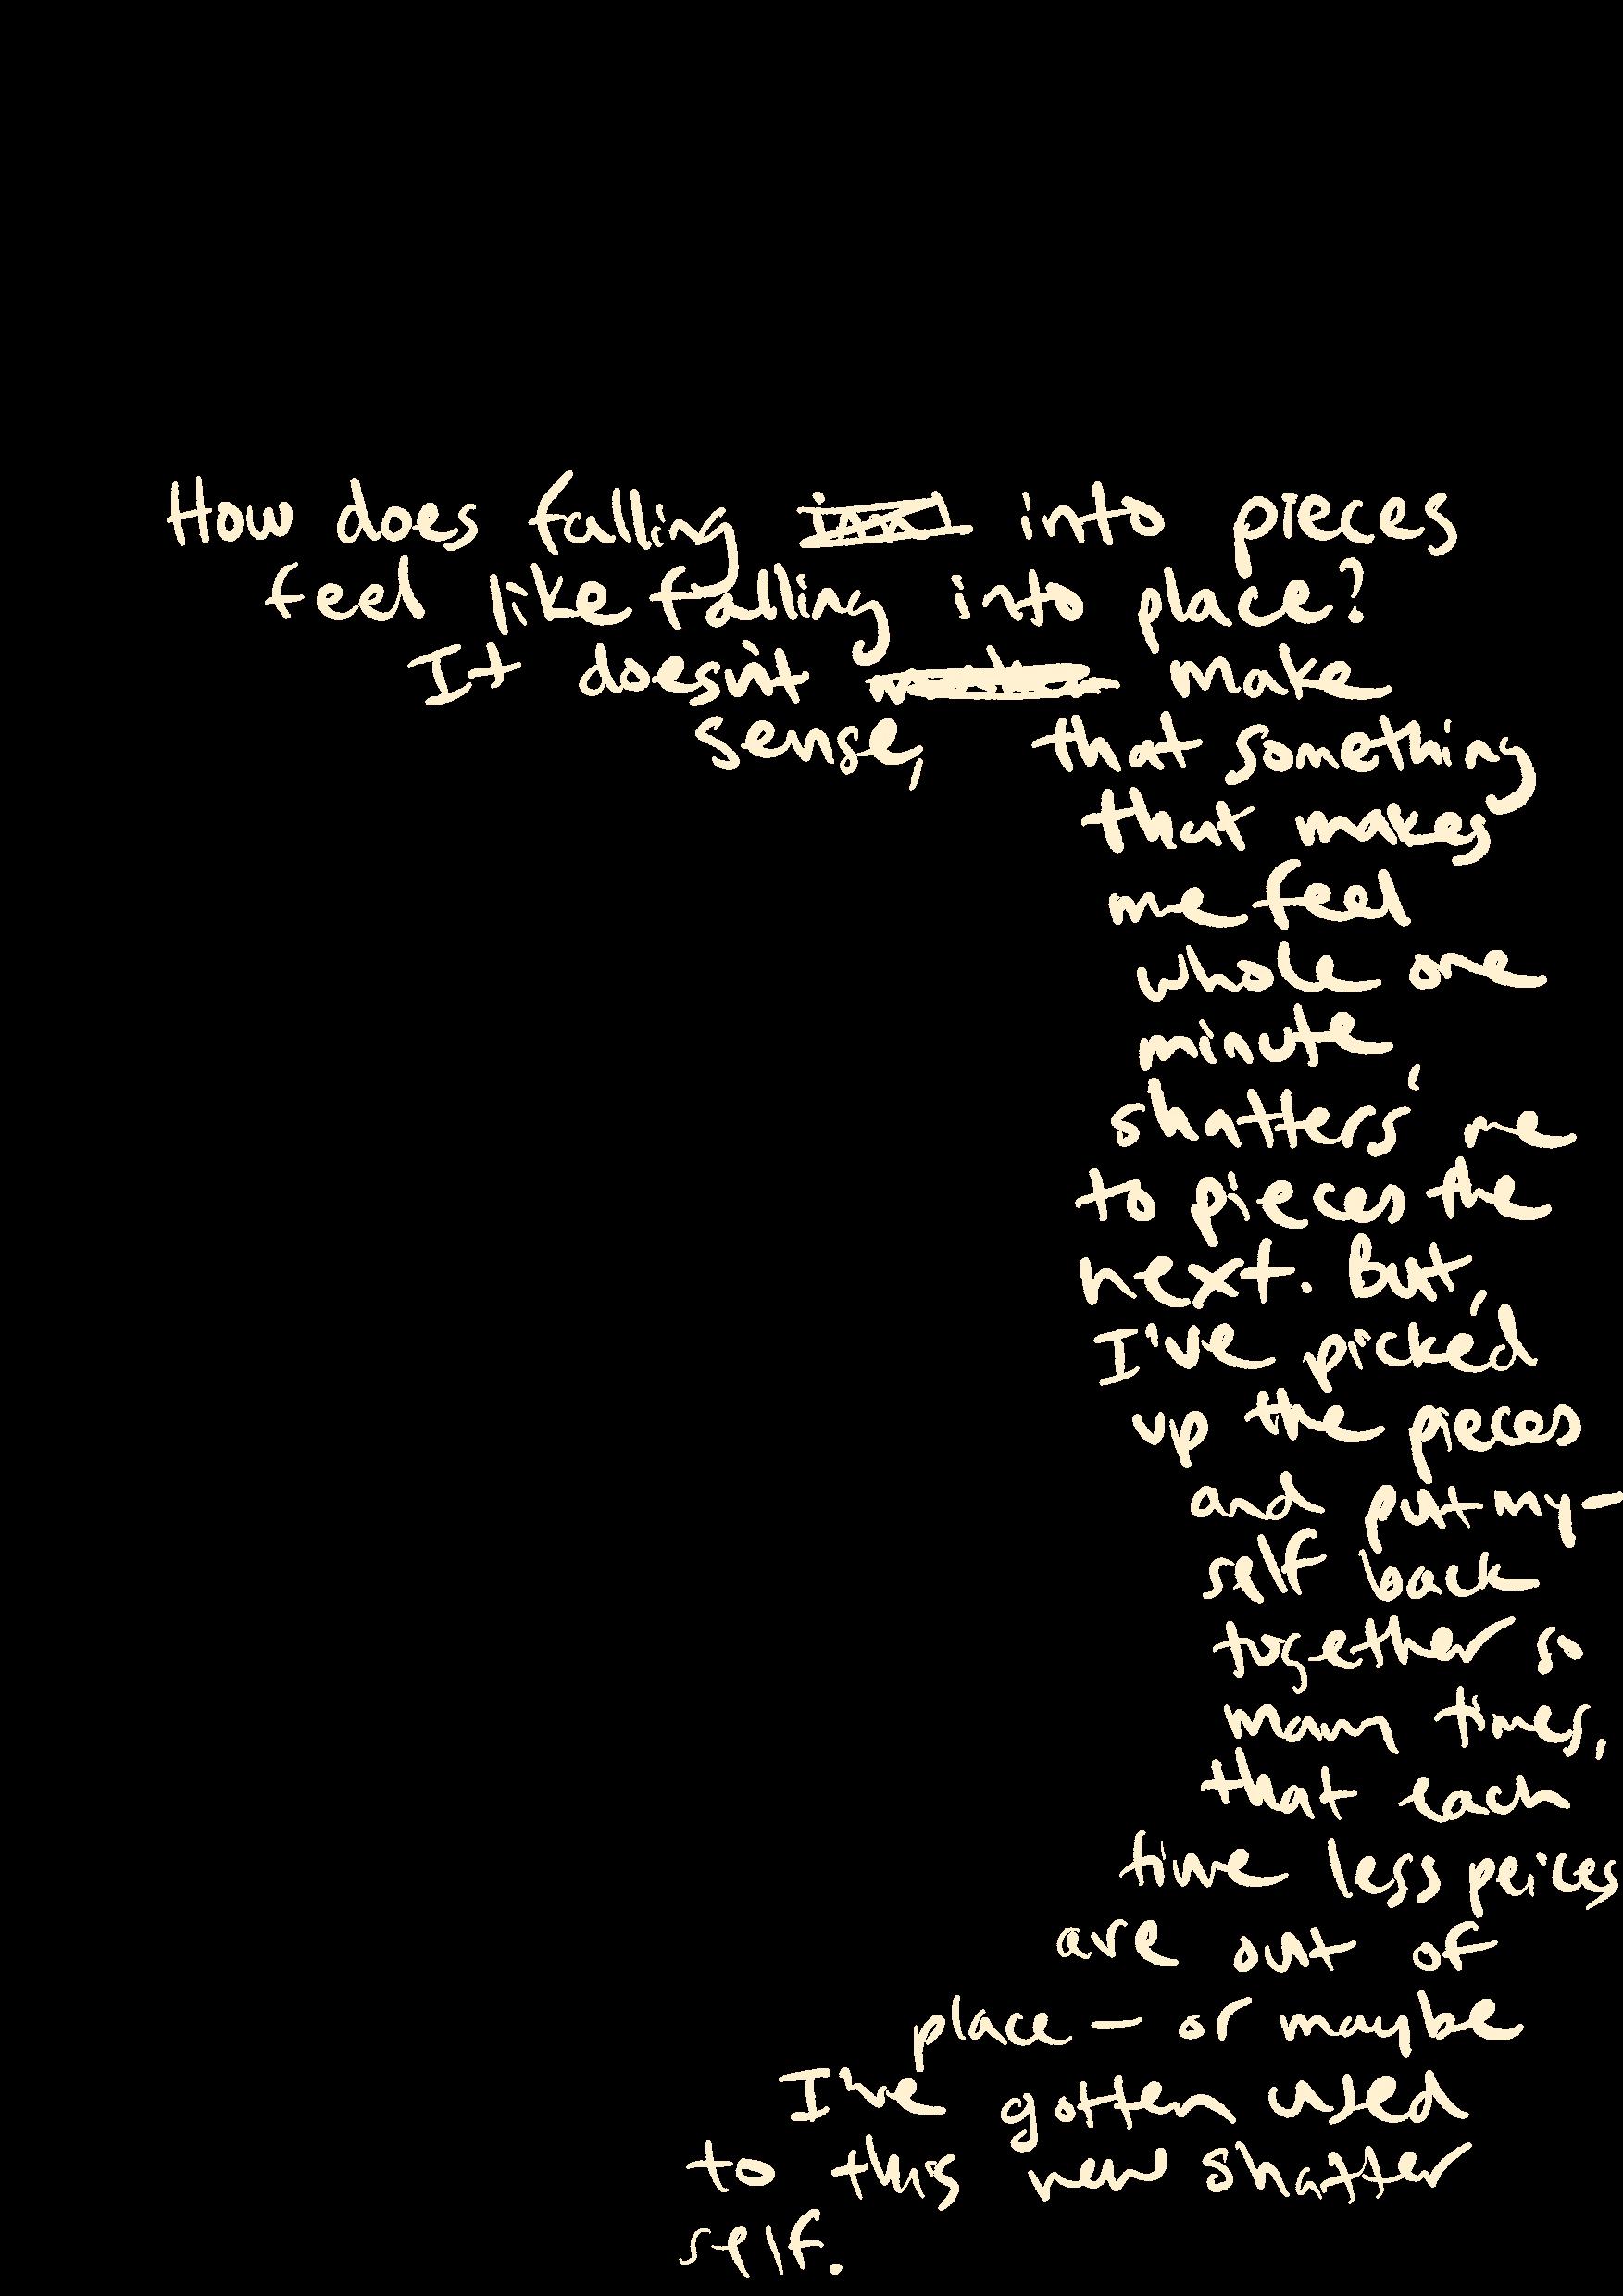 How does falling into pieces
feel like falling into place?
It doesn't make
sense, that something
that makes
me feel
whole one
minute,
shatters me
to pieces the
next. But,
I've picked
up the pieces
and put my-
self back
together so
many times,
that each
time less peices
are out of
place – or maybe
I've gotten used
to this new shatter
self.